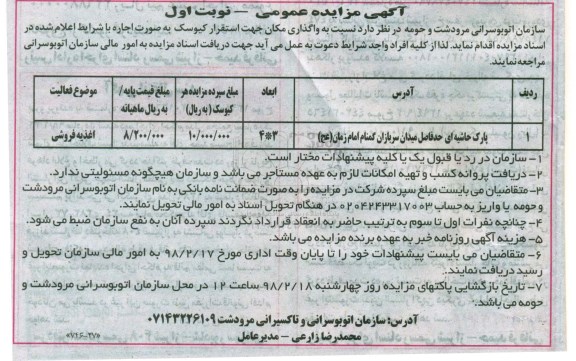 آگهی مزایده عمومی – نوبت اول
سازمان اتوبوسرانی مرودشت و حومه در نظر دارد نسبت به واگذاری مکان جهت استقرار کیوسک به صورت اجاره با شرایط اعلام شده در
اسناد مزایده اقدام نماید. لذا از کلیه افراد واجد شرایط دعوت به عمل می آید جهت دریافت اسناد مزایده به امور مالی سازمان اتوبوسرانی
مراجعه نمایند.
ردیف آدرس ابعاد مبلغ سپرده مزایده هر کیوسک (به ریال) مبلغ قیمت پایه/ به ریال ماهیانه موضوع فعالیت
۱ پارک حاشیه ای حدفاصل میدان سربازان گمنام امام زمان (عج) ۳*۴ ۱۰/۰۰۰/۰۰۰ ۸/۲۰۰/۰۰۰ اغذیه فروشی
۱– سازمان در رد یا قبول یک یا کلیه پیشنهادات مختار است.
۲– دریافت پروانه کسب و تهیه امکانات لازم به عهده مستاجر می باشد و سازمان هیچگونه مسئولیتی ندارد.
۳– متقاضیان می بایست مبلغ سپرده شرکت در مزایده را به صورت ضمانت نامه بانکی به نام سازمان اتوبوسرانی مرودشت
و حومه یا واریز به حساب ۰۲۰۴۲۴۳۳۱۷۰۰۳ در هنگام تحویل اسناد به امور مالی تحویل نمایند.
۴– چنانچه نفرات اول تا سوم به ترتیب حاضر به انعقاد قرارداد نگردند سپرده آنان به نفع سازمان ضبط می شود.
۵– هزینه آگهی روزنامه خبر به عهده برنده مزایده می باشد.
۶– متقاضیان می بایست پیشنهادات خود را تا پایان وقت اداری مورخ ۹۸/۲/۱۷ به امور مالی سازمان تحویل و
رسید دریافت نمایند.
۷– تاریخ بازگشایی پاکتهای مزایده روز چهارشنبه ۹۸/۲/۱۸ ساعت ۱۲ در محل سازمان اتوبوسرانی مرودشت و
حومه می باشد.
آدرس: سازمان اتوبوسرانی و تاکسیرانی مرودشت ۰۷۱۴۳۲۲۶۱۰۹
محمدرضا زارعی – مدیرعامل